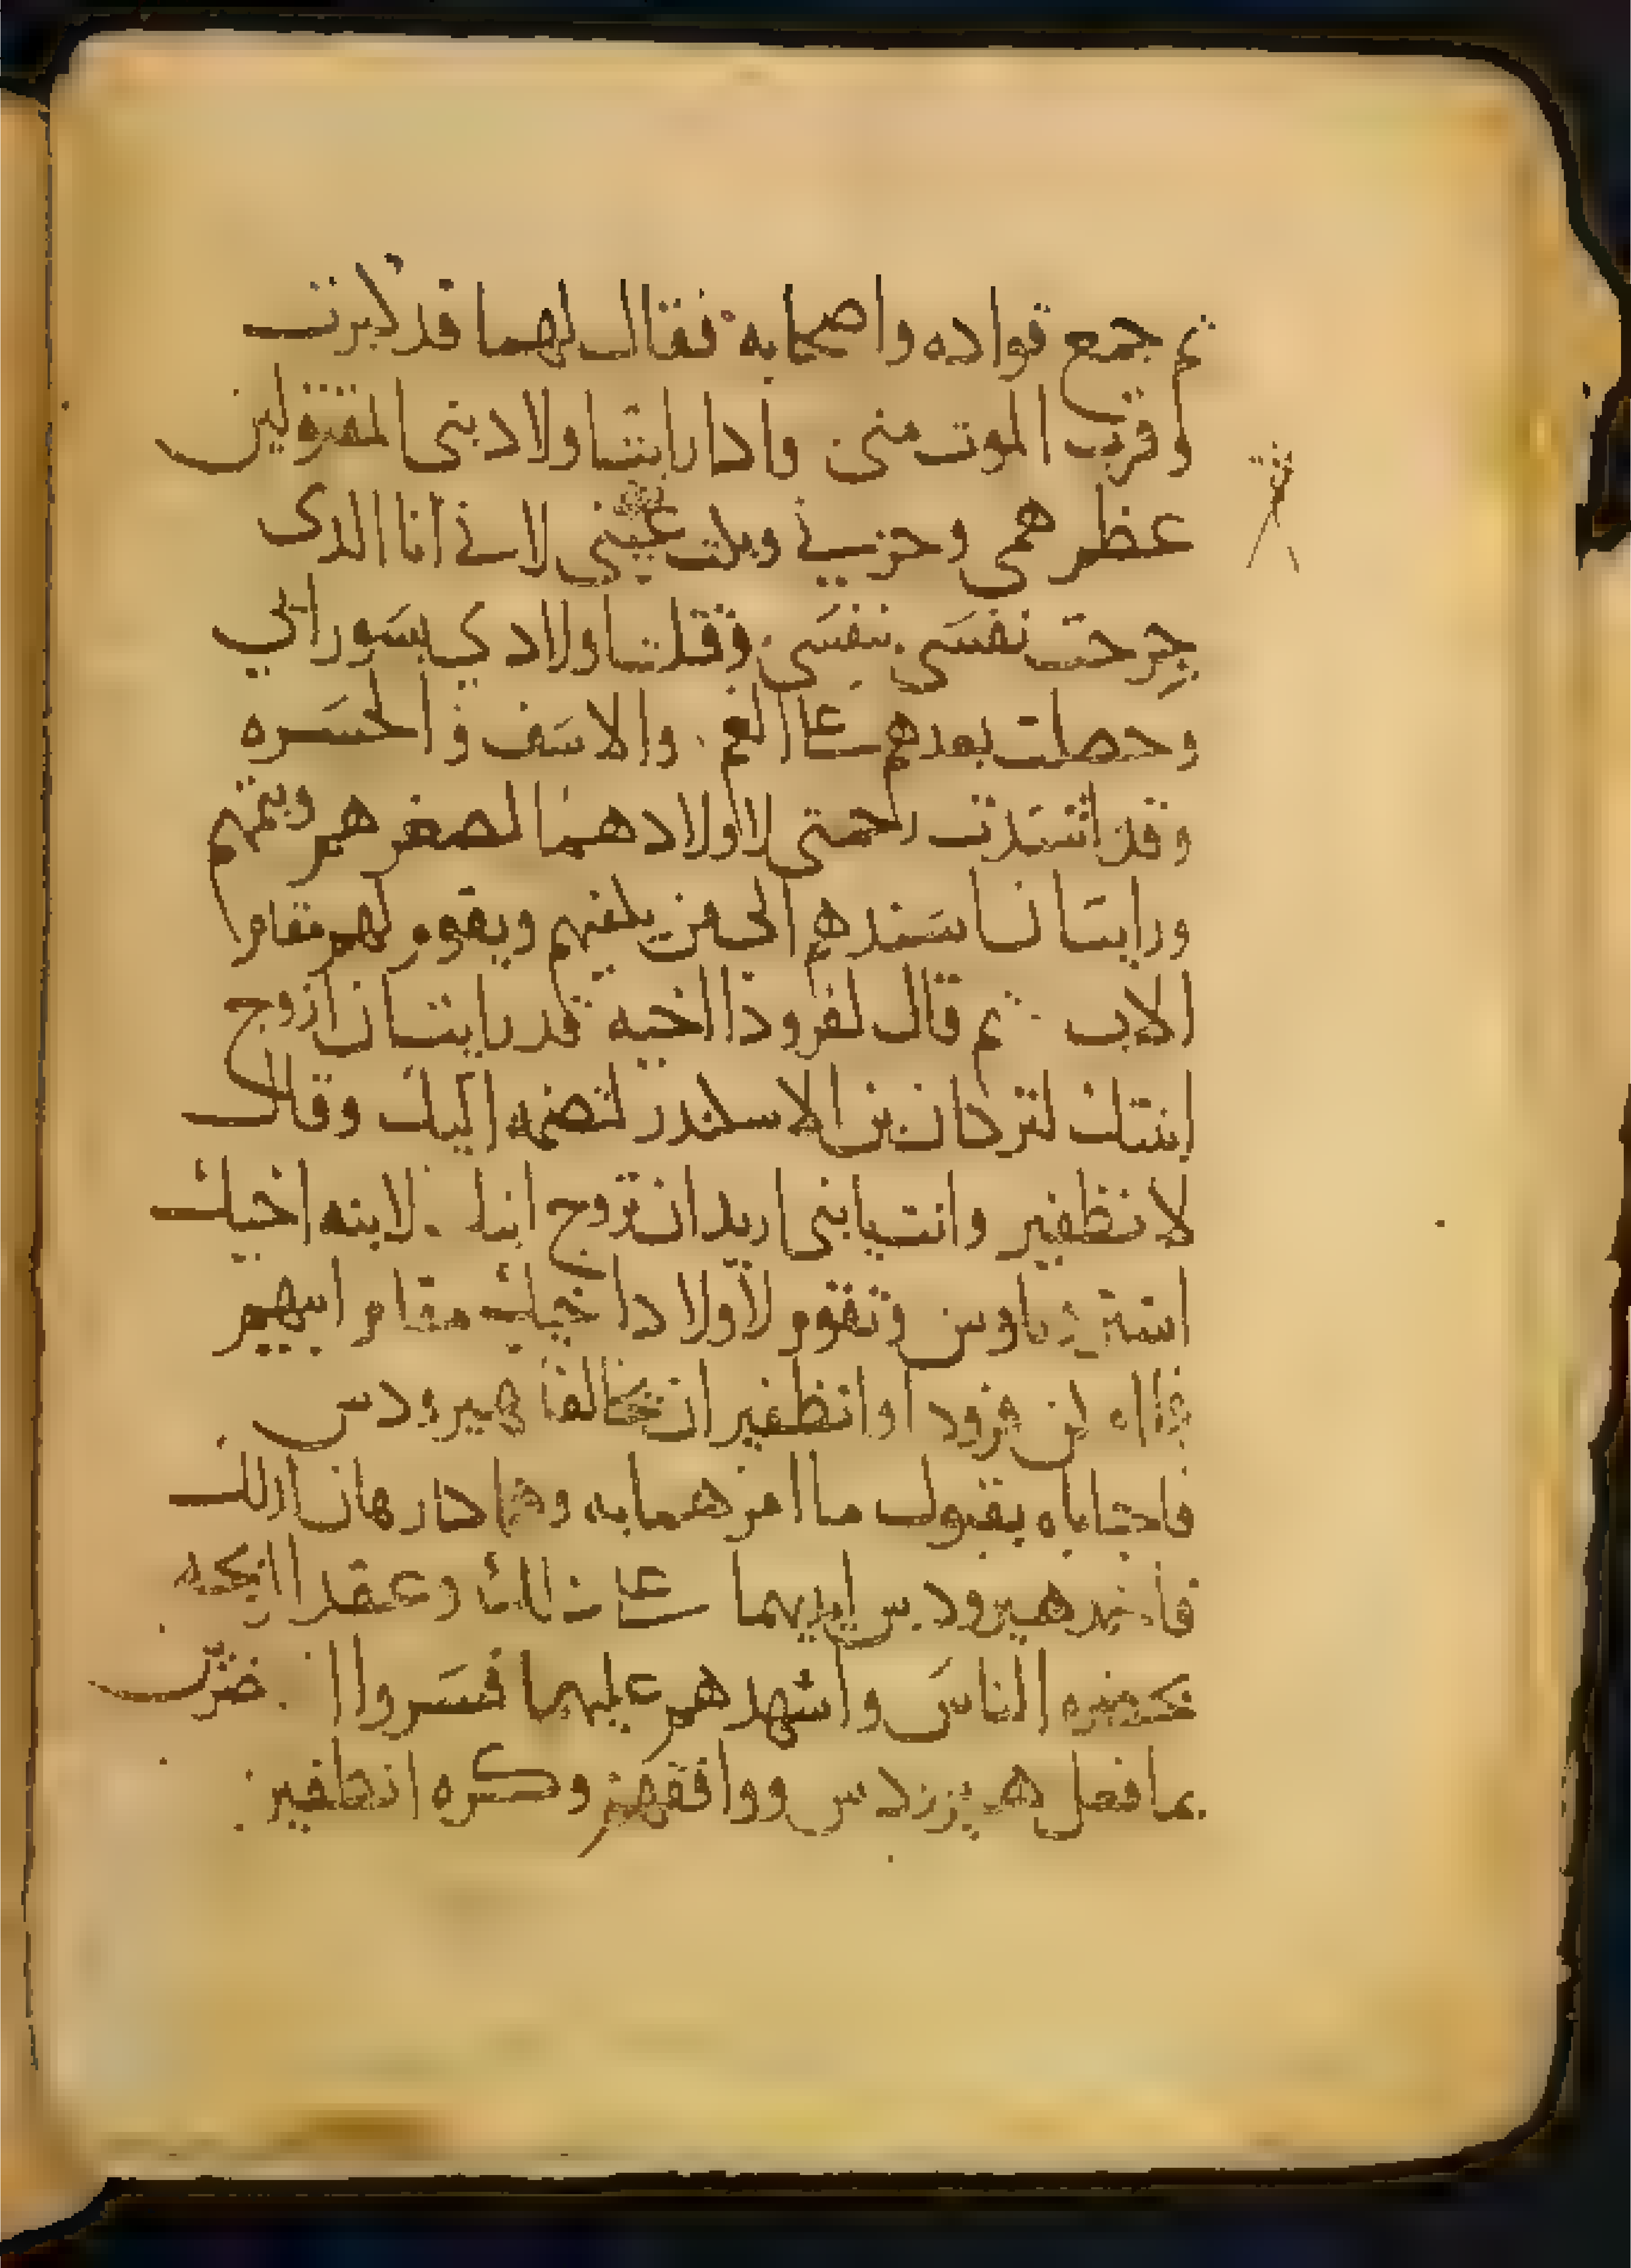 ثم جمع قواده واصحابه فقال لهما قد كبرت
وقرب الموت مني واذا رايت اولاد بني المقتولين
عظم همي وحزني وبكت عيني لاني انا الذى
جرحت نفسى بنفسى وقتلت اولادي بسو رايي
وحصلت بعدهم على الغم والاسف والحسره
وقد اشتدت رحمتى لاولادهما لصغرهم ويتمهم
ورايت ان اسندهم الى من يكفيهم ويقوم لهم مقام
الاب ثم قال لفرودا اخيه قد رايت ان ازوج
ابنتك لتركان بن الاسكندر لتضمه اليك وقال
لانظفير وانت يا بنى اريد ان تزوج ابنك لابنه اخيك
وتقوم لاولاد اخيك مقام ابيهم
فرودا وانظفير ان يخالفا هيرودس
فاجاباه بقبول ما امرهما به وهما كارهان لذلك
فاخذ هيرودس ايديهما على ذلك وعقد
بحضره الناس واشهدهم عليهما فسروا
بما فعل هيرودس ووافقهم وكره انظفير